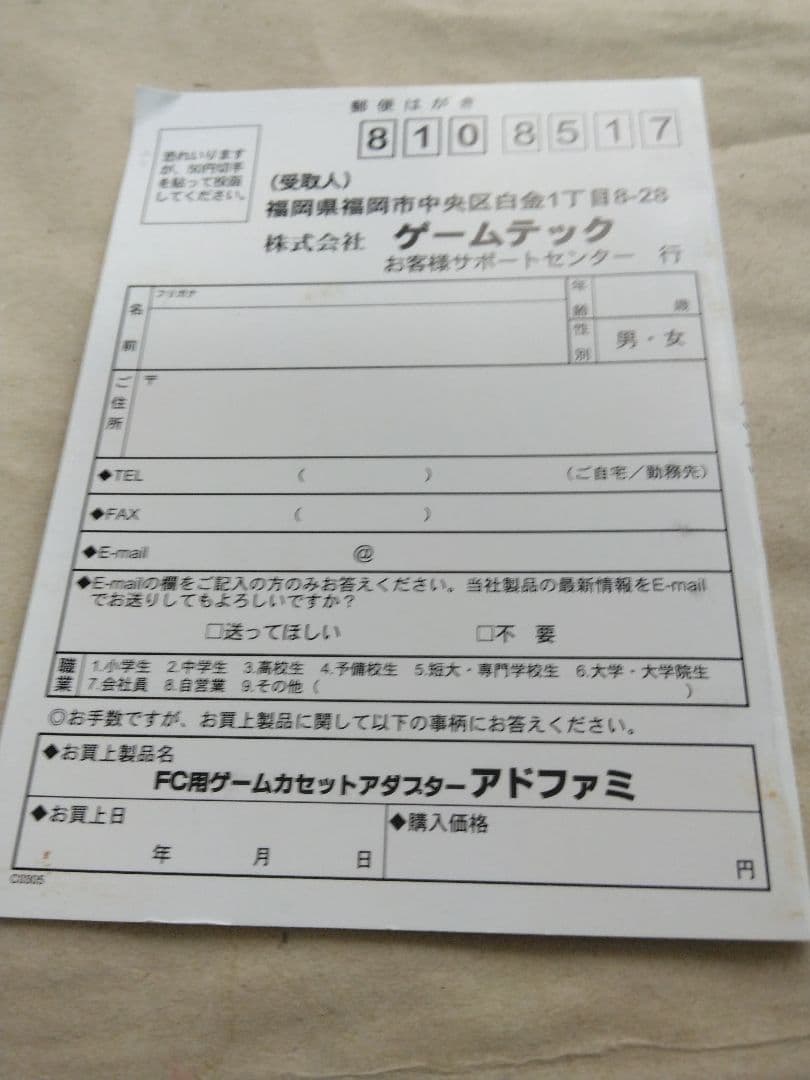 郵便はがき
8108517
恐れいります
が、50円切手
を貼って投函
してください。
(受取人)
福岡県福岡市中央区白金1丁目8-28
株式会社 ゲームテック
お客様サポートセンター 行
フリガナ
名前
年齢 歳
性別 男・女
ご住所 〒
◆TEL ( ) (ご自宅/勤務先)
◆FAX ( )
◆E-mail @
◆E-mailの欄をご記入の方のみお答えください。当社製品の最新情報をE-mail
でお送りしてもよろしいですか?
□送ってほしい □不 要
職業
1.小学生 2.中学生 3.高校生 4.予備校生 5.短大・専門学校生 6.大学・大学院生
7.会社員 8.自営業 9.その他( )
◎お手数ですが、お買上製品に関して以下の事柄にお答えください。
◆お買上製品名
FC用ゲームカセットアダプター アドファミ
◆お買上日
年 月 日
◆購入価格
円